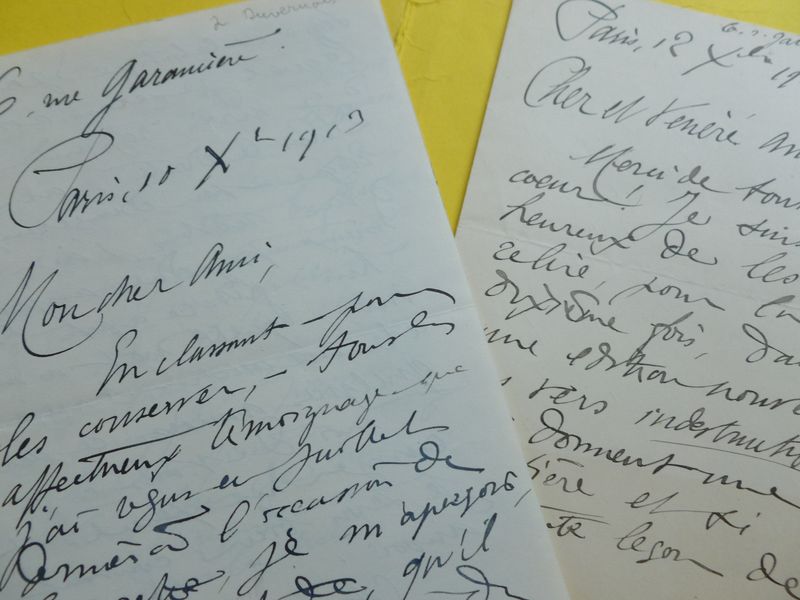 6, rue Garancière.
Paris, 10 Xbre 1913
Mon cher Ami,
En classant pour
les conserver, – tous les
affectueux témoignage que
j'ai reçus en Juillet
dernier à l'occasion de
je m'aperçois,
qu'il
Paris, 12 Xbre 19
Cher et Vénéré am
Merci de tout
coeur! Je suis
heureux de les
relire, pour la
dixième fois, da
une edition nouve
vers indestructi
donnent une
ière et si
leçon de